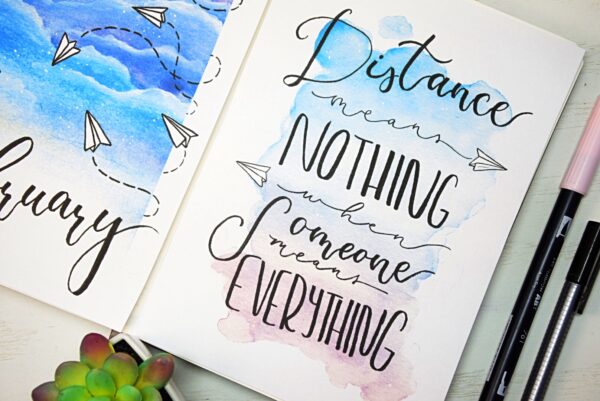 bruary
Distance
means
NOTHING
when
Someone
means
EVERYTHING